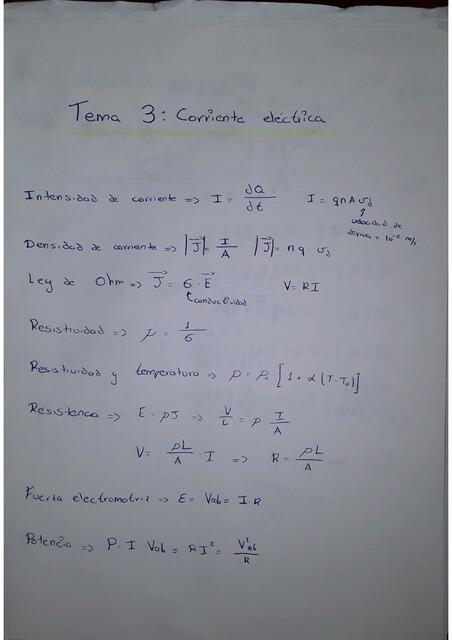 Tema 3: Corriente eléctrica
Intensidad de corriente => I = dQ/dt    I = qnAvd
velocidad de
deriva = 10^-2 m/s
Densidad de corriente => |J⃗| = I/A   |J⃗| = nq · vd
Ley de Ohm => J⃗ = σ · E⃗    V = RI
conductividad
Resistividad => ρ = 1/σ
Resistividad y temperatura => ρ = ρ₀ [1 + α (T-T₀)]
Resistencia => E = ρJ => V/L = ρ I/A
V = ρL/A · I => R = ρL/A
Fuerza electromotriz => ε = Vab = I · R
Potencia => P = I · Vab = RI² = V²ab/R